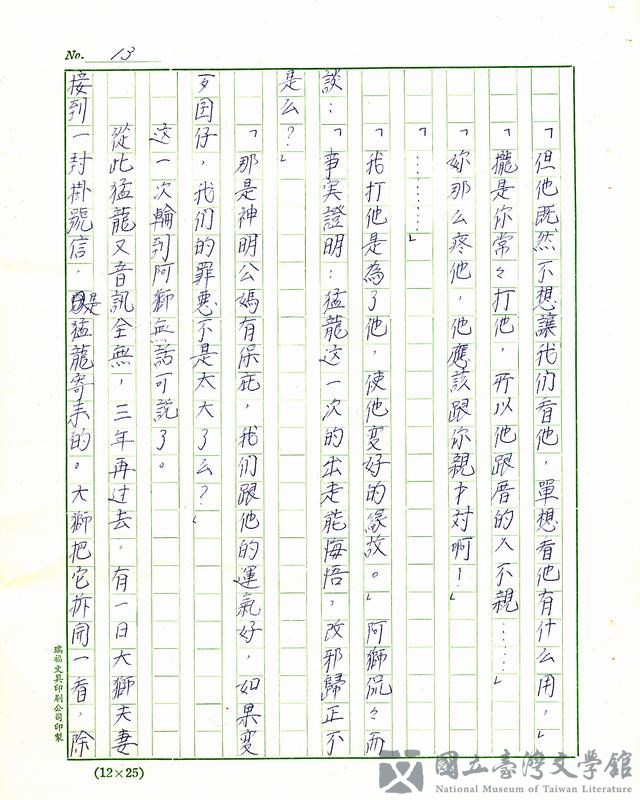 No. 13
「但他既然不想讓我们看他，單想看他有什么用，」
「攏是你常々打他，所以他跟厝的人不親……」
「妳那么疼他，他應該跟你親才对啊！」
「………」
「我打他是為了他，使他变好的緣故。」阿獅侃々而
談：「事实證明：猛龍这一次的出走能悔悟，改邪歸正不
是么？」
「那是神明公媽有保庇，我们跟他的運氣好，如果变
歹囝仔，我们的罪惡不是太大了么？」
这一次輪到阿獅無話可說了。
從此猛龍又音訊全無，三年再过去，有一日大獅夫妻
接到一封掛號信，是猛龍寄来的。大獅把它拆開一看，除
瑞福文具印刷公司印製
(12×25)
國立臺灣文學館
National Museum of Taiwan Literature